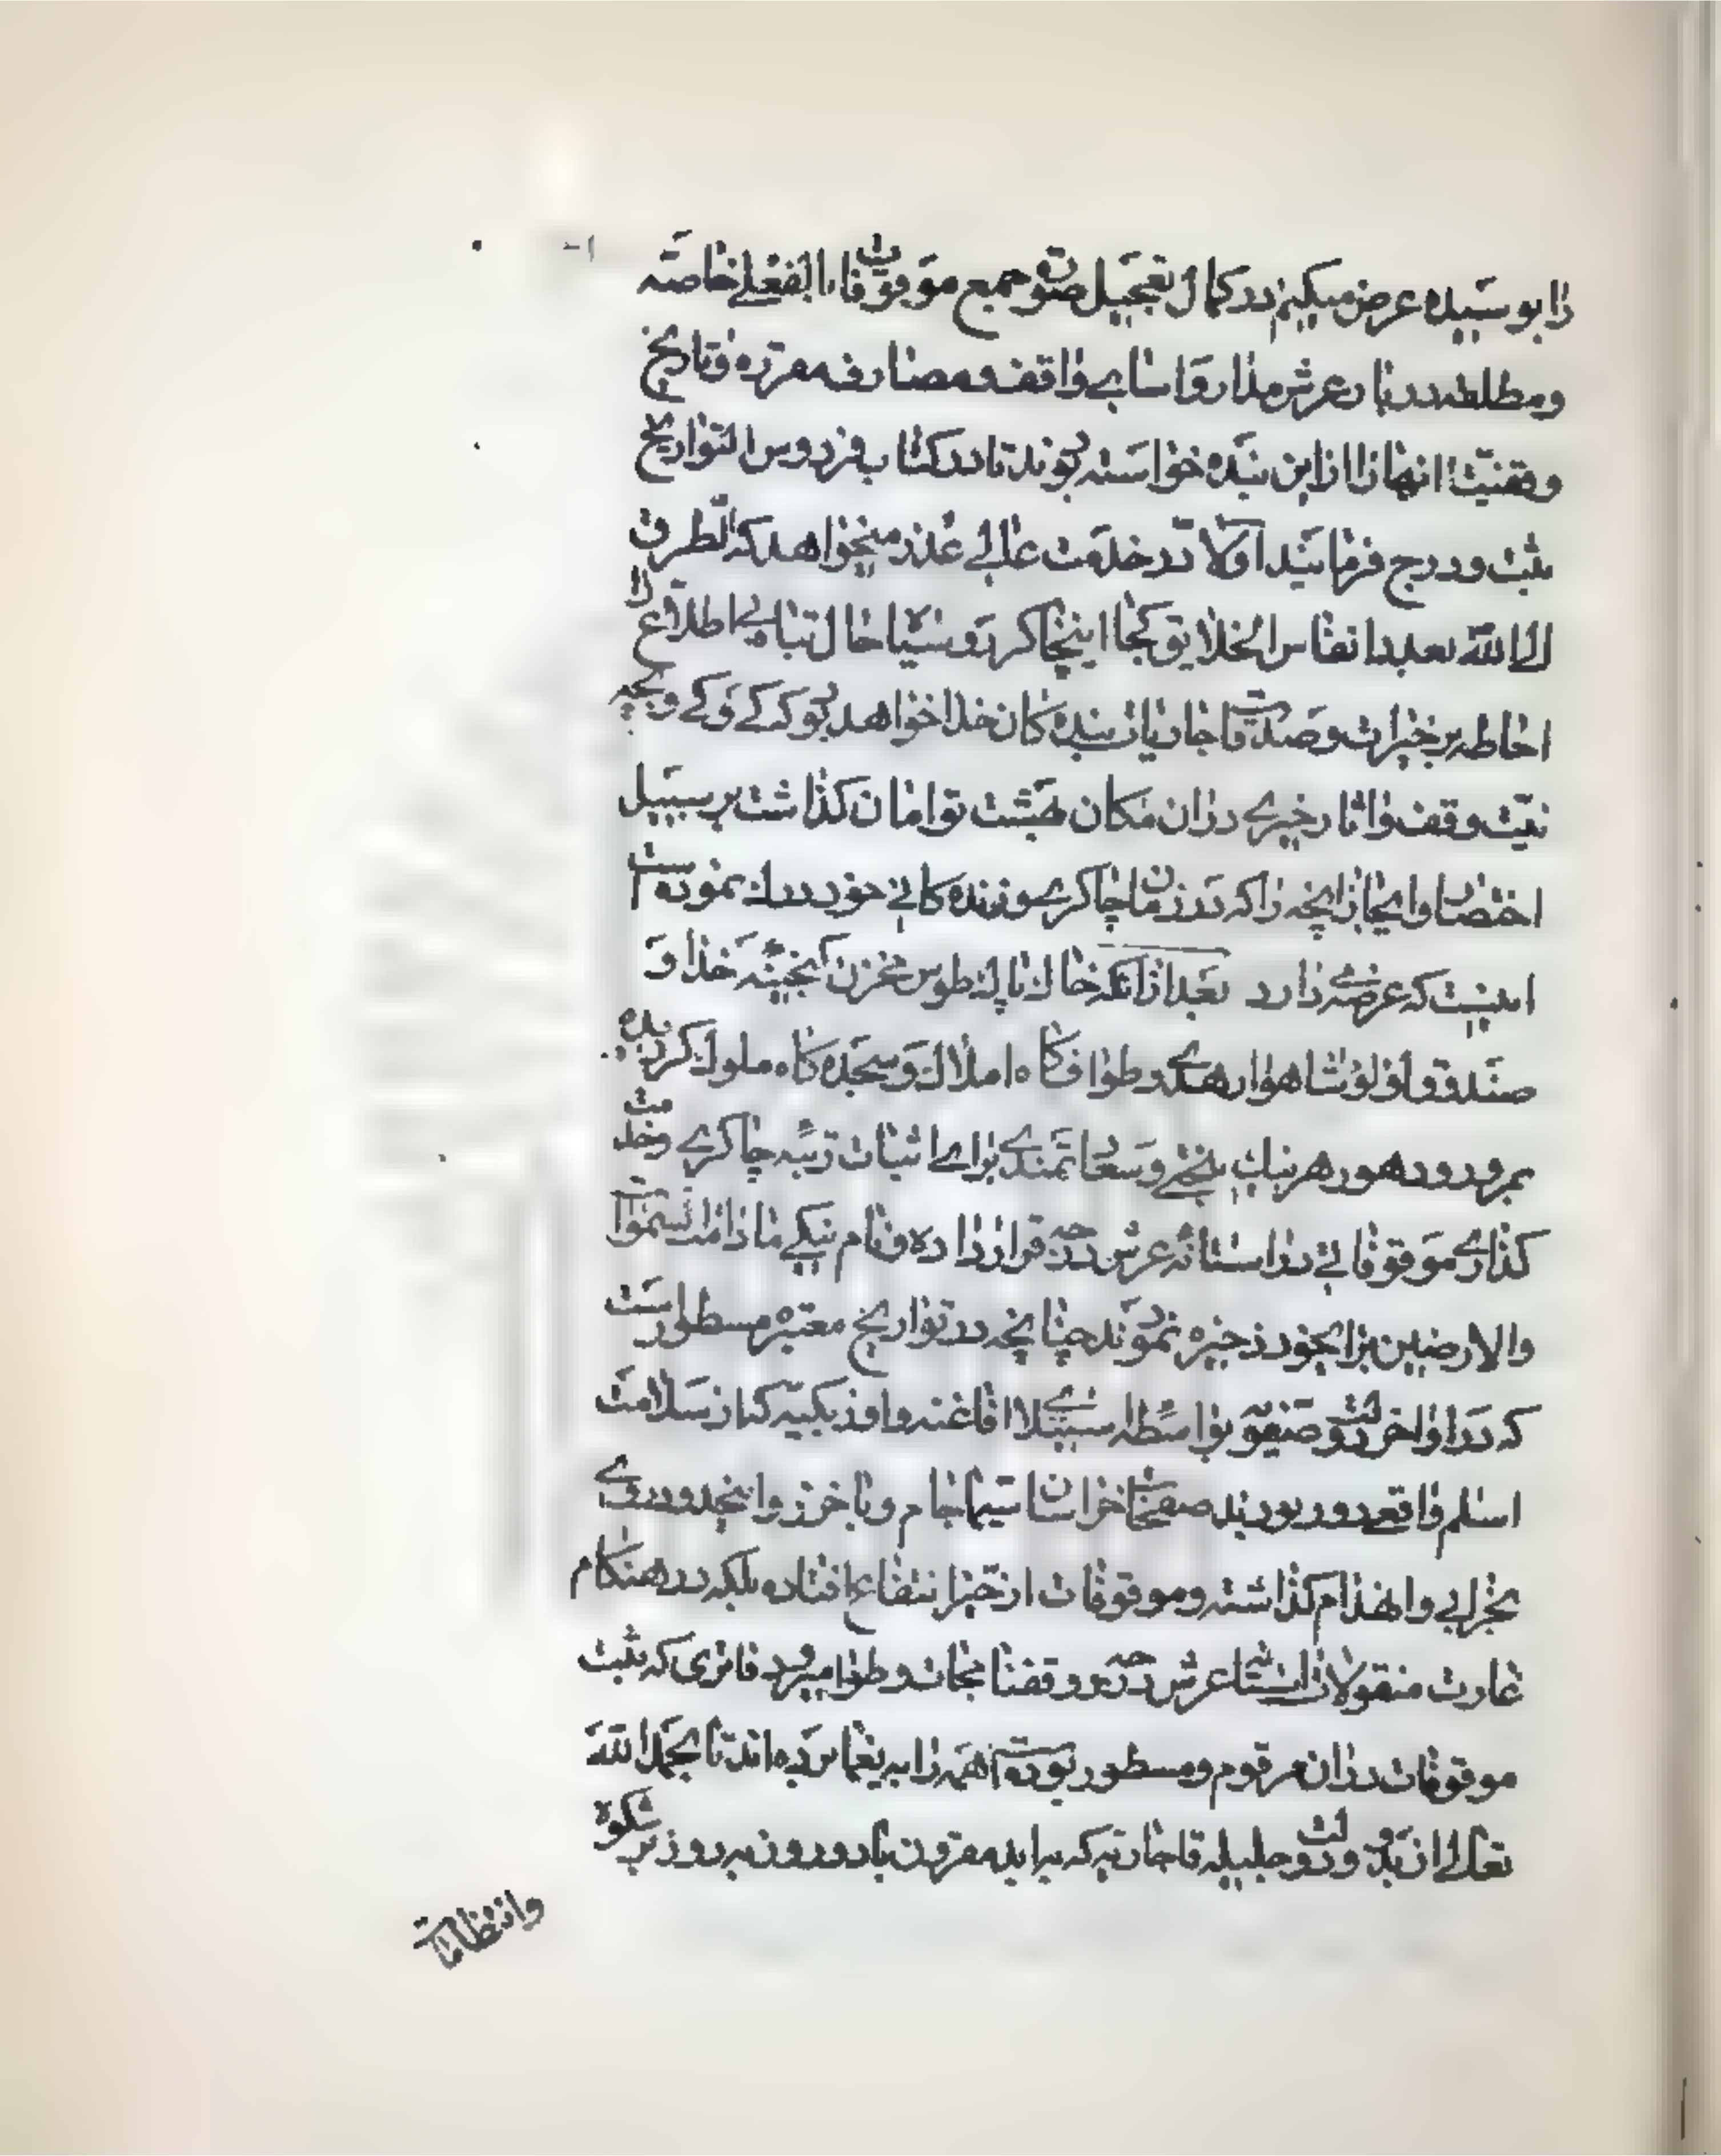 را بوسیده عرض میکنم در کمال تعجیل صورت جمیع موقوفات بالفعلی خاصه
ومطلقه دربار عرش مدار واسامی واقف ومصارف مقرره وتاریخ
وقفیت انها را از این بنده خواسته بودند تا در کتاب فردوس التواریخ
ثبت ودرج فرمایند اولا در خدمت عالی عذر میخواهد که الطرق
الی الله بعدد انفاس الخلایق کجا اینجا کر روسیاه حال تباهی اطلاع را
احاطه بر خیرات وصدقات جاریات بنده کان خدا خواهد بود که کی وکی وبچه
نیت وقف واثار خیری دران مکان بهشت توامان کذاشت بر سبیل
اختصار وایجاز انچه را که در زمان چاکری وزنده کانی خود درک نموده است
اینست که عرضه دارد بعد از انکه خاک پاک طوس مخزن کنجینه خدا و
صندوق لؤلؤ شاهوار هدی وطوافکاه املاک وسجده کاه ملوک کردیده
بمرور دهور هر نیک بختی وسعادتمندی برای اثبات رتبه چاکری وخدمت
کذاری موقوفاتی در استانه عرش درجه قرار داده ونام نیکی مادامت السموات
والارضین برای خود ذخیره نمودند چنانچه در تواریخ معتبره مسطور است
که در اواخر دولت صفویه بواسطه استیلاء افاغنه واوزبکیه که از سلامت
اسلم واقعی دور بودند صفحات خراسان سیما جام وباخرز وانحدود روی
بخرابی وانهدام کذاشته وموقوفات از حیز انتفاع افتاده بلکه در هنکام
غارت منقولات استان عرش درجه وقفنامجات وطوامیر ودفاتری که ثبت
موقوفات دران مرقوم ومسطور بوده است همه را به یغما برده اند تا بحمد الله
تعالی از بدو دولت جلیله قاجاریه که بابد مقرون باد روز بروز بر شکوه
وانتظامات